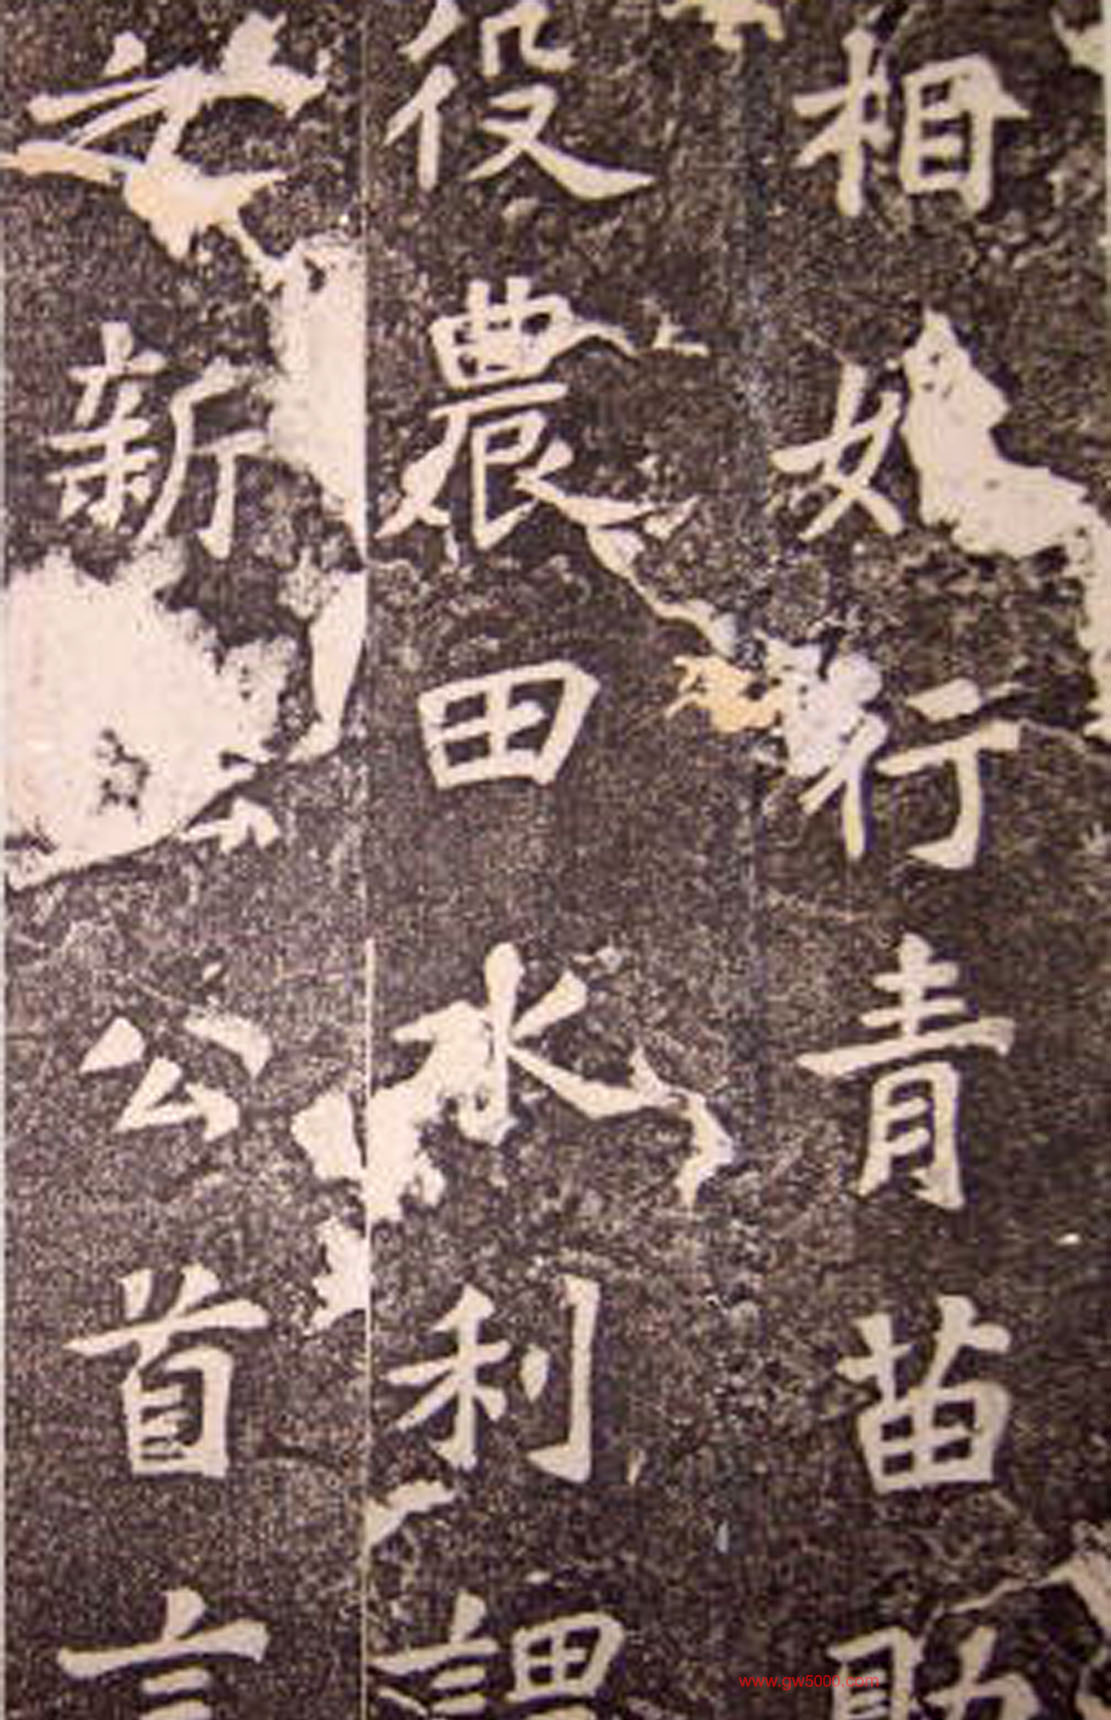 相行青苗助
役農田水利謂
之新公首言
www.gw5000.com